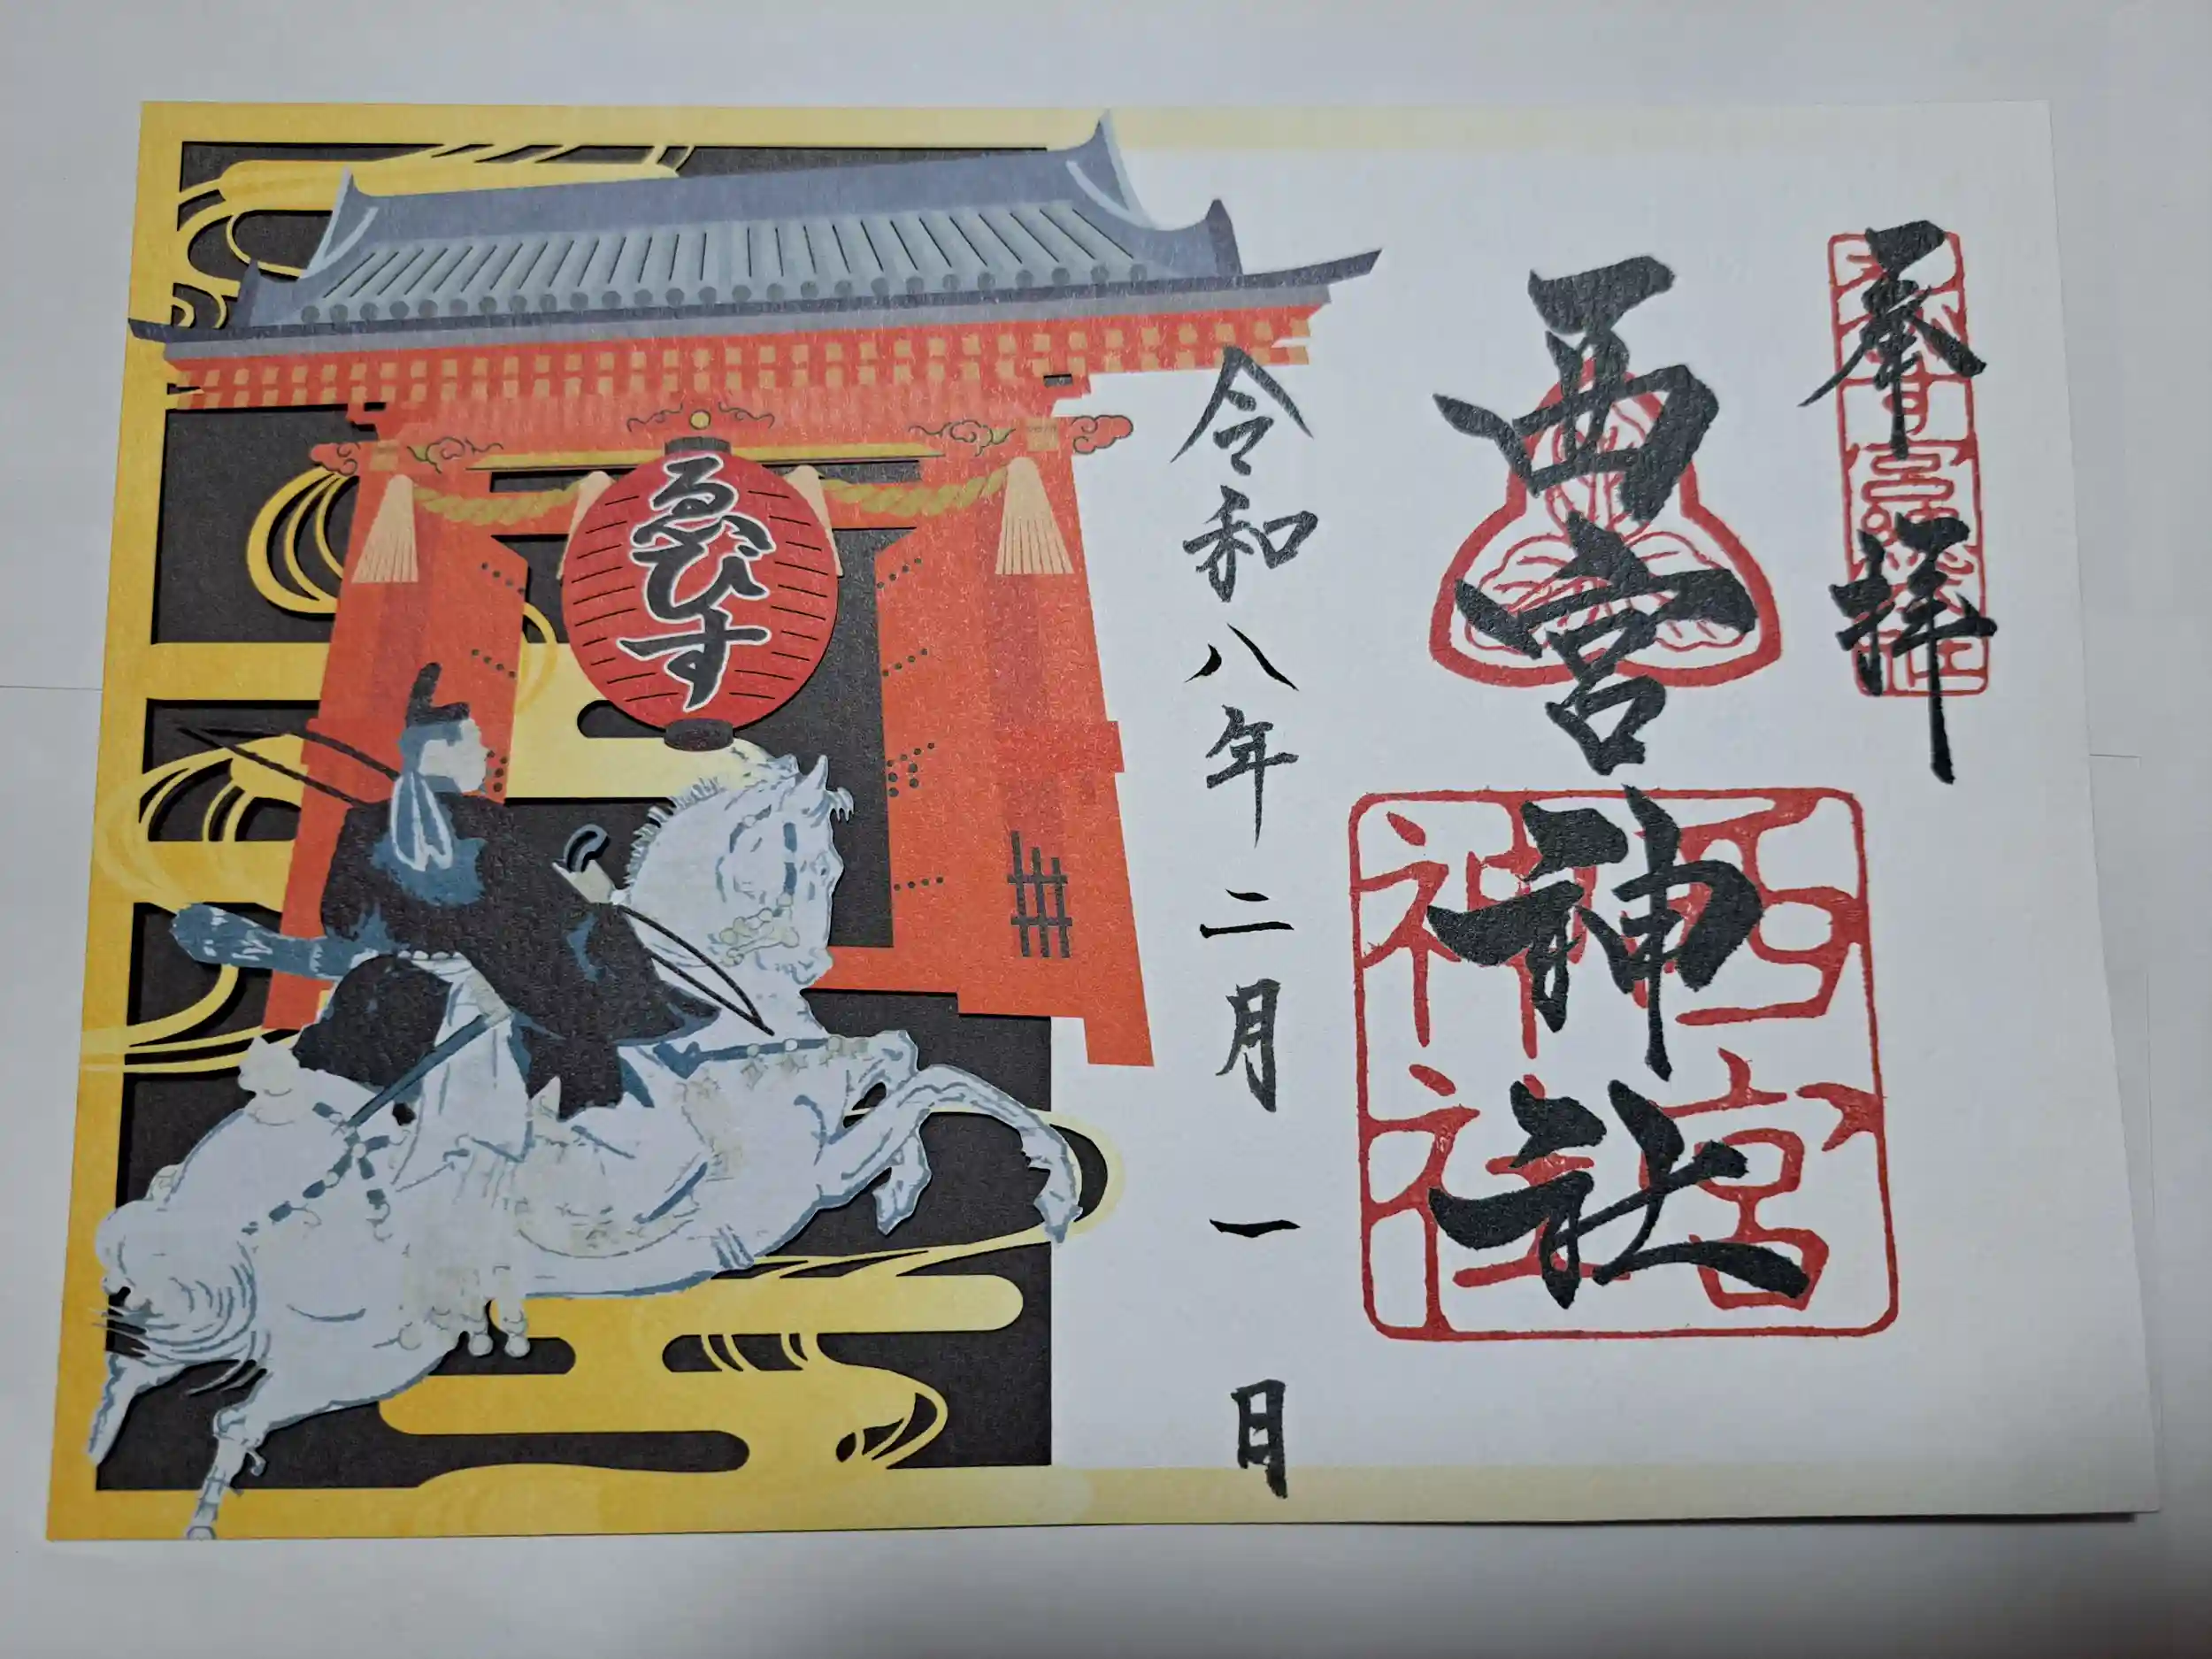 奉拝
西宮神社
西宮神社
令和八年二月一日
ゑびす